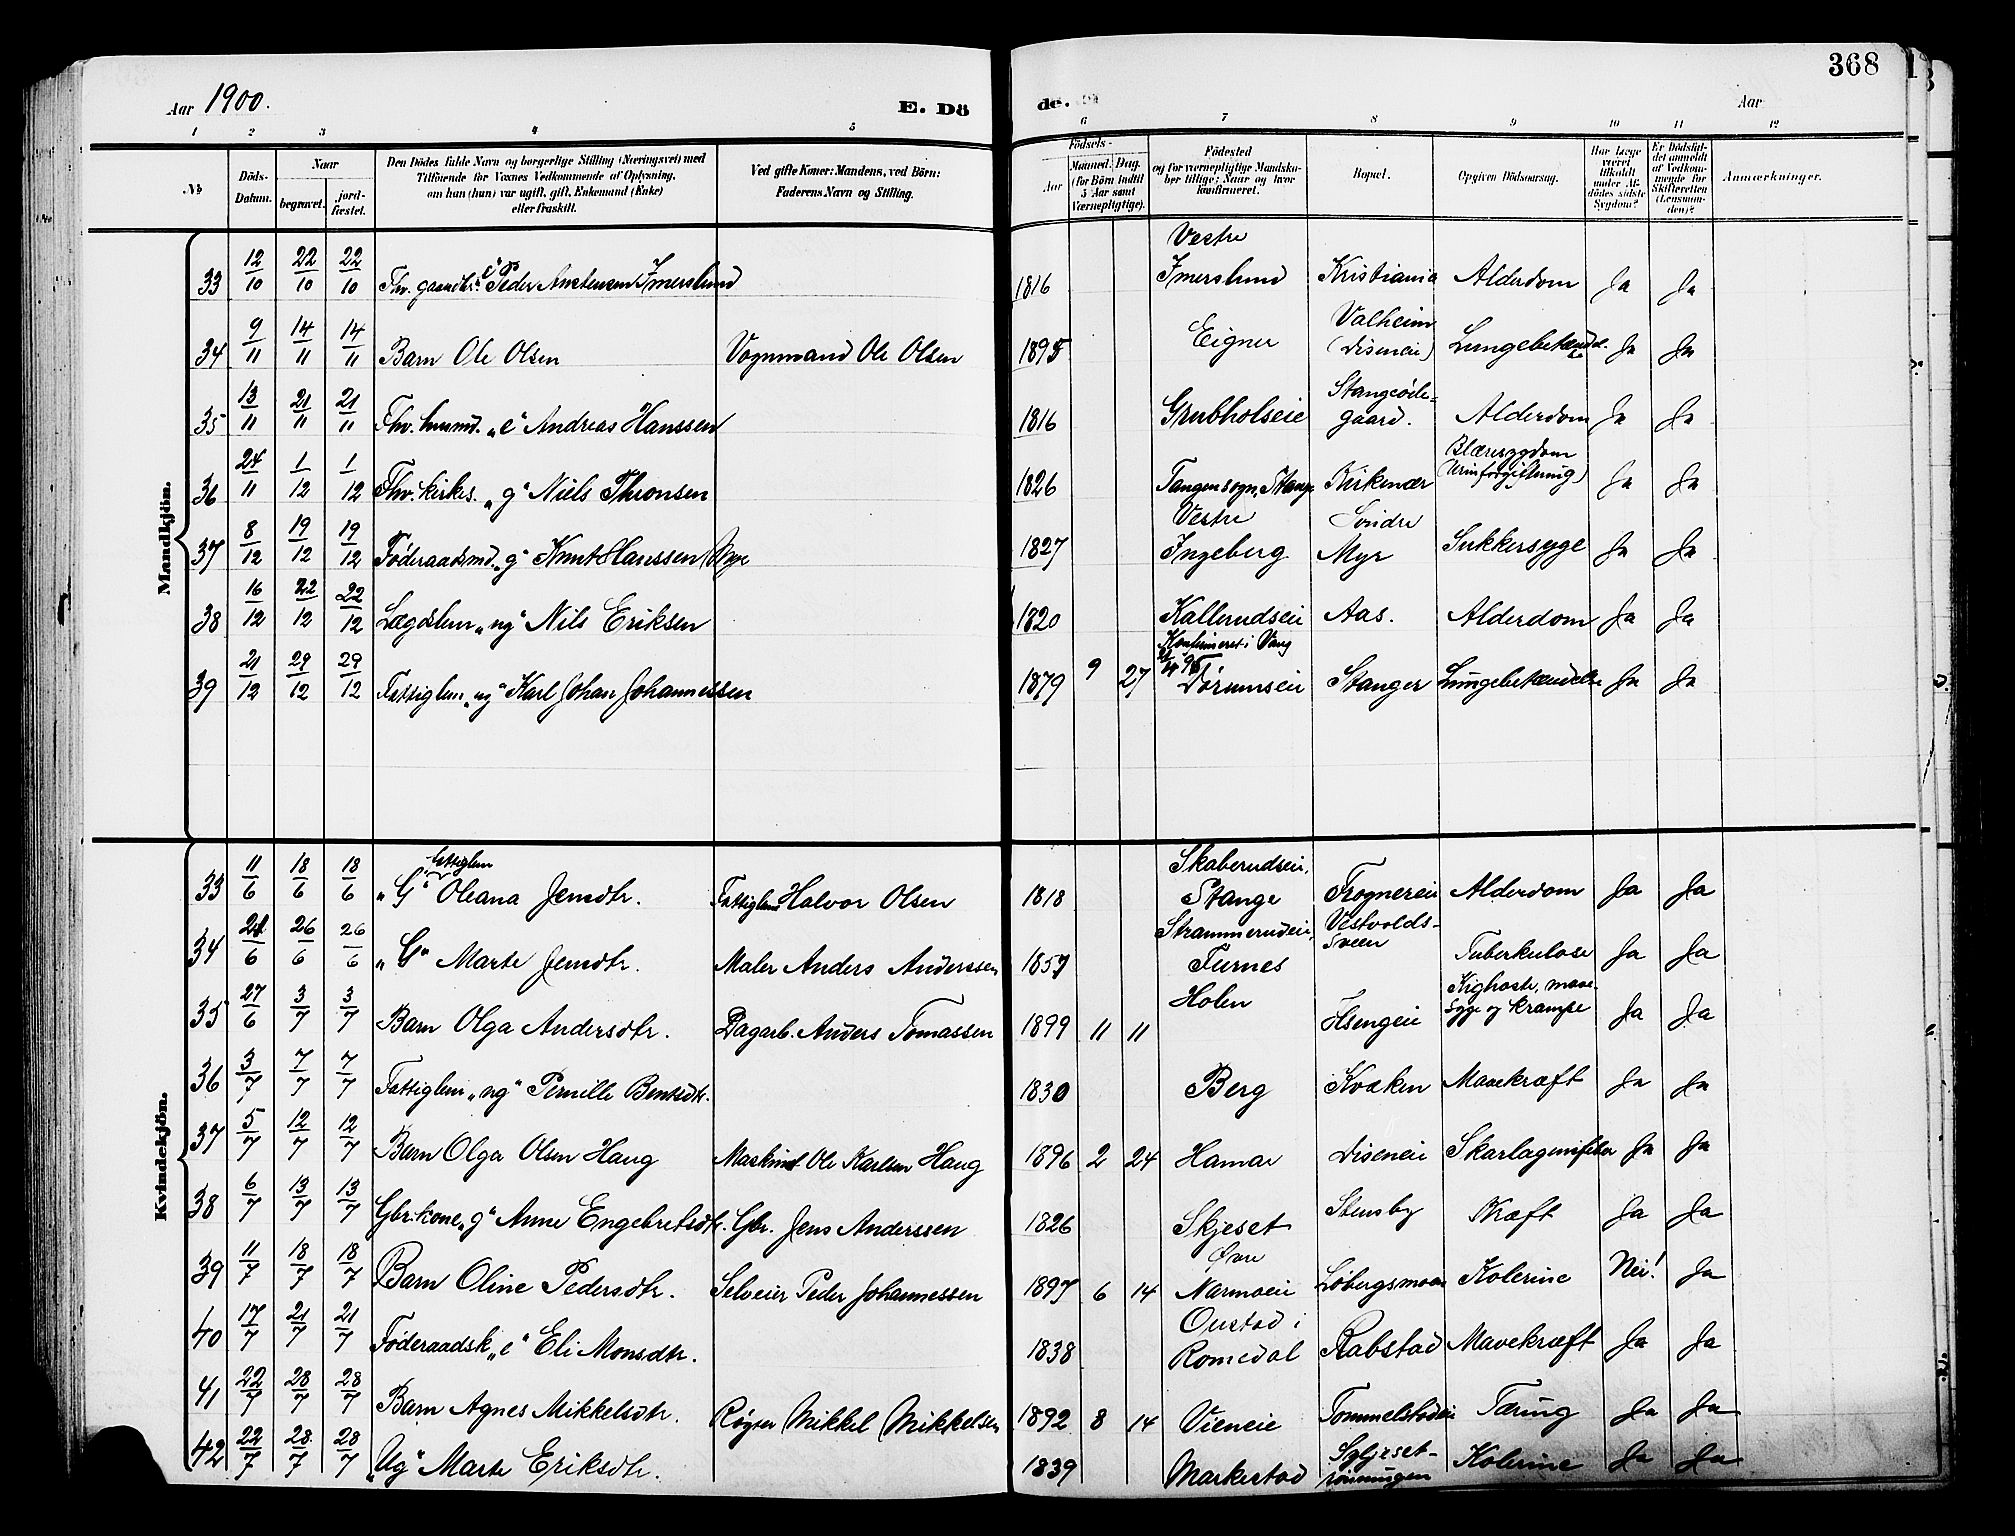 368
Aar 1900.
E. Dö
de.
Aar
1 2 3 4 5 6 7 8 9 10 11 12
№
Döds-Datum.
Naar
begravet.
jord-fæstet.
Den Dödes fulde Navn og borgerlige Stilling (Næringsvei) med
Tilföiende for Voxnes Vedkommende af Oplysning,
om han (hun) var ugift, gift, Enkemand (Enke)
eller fraskilt.
Ved gifte Koner: Mandens, ved Börn:
Faderens Navn og Stilling.
Födsels-
Aar
Maaned. Dag.
(for Börn indtil
5 Aar samt
Værnepligtige).
Födested
og for værnepligtige Mandska-
ber tillige: Naar og hvor
konfirmeret.
Bopæl.
Opgiven Dödsaarsag.
Har Læge
været
tilkaldt
under Af-
dödes sidste
Sygdom?
Er Dödsfal-
det anmeldt
af Vedkom-
mende for
Skifteretten
(Lensman-
den)?
Anmærkninger.
Mandkjön.
33 12/10 22/10 22/10 Fhv. gaardbr. "e" Peder Anstensen Imerslund 1816 Vestre Imerslund Kristiania Alderdom Ja Ja
34 9/11 14/11 14/11 Barn Ole Olsen Vognmand Ole Olsen 1895 Eigner Valheim (Diseneie) Lungebetændelse Ja Ja
35 13/11 21/11 21/11 Fhv. husmd. "e" Andreas Hanssen 1816 Grubholseie Stangeøde=gaard. Alderdom Ja Ja
36 24/11 1/12 1/12 Fhv. kirkes. "g" Niels Thronsen 1826 Tangen sogn, Stange Kirkenær Blæresygdom (Urinforgiftning) Ja Ja
37 8/12 19/12 19/12 Føderaadsmd. "g" Knut Hanssen Mye 1827 Vestre Ingeberg Søndre Myr Sukkersyge Ja Ja
38 16/12 22/12 22/12 Lægdslem "ug" Nils Eriksen 1820 Kallerudseie Aas. Alderdom Ja Ja
39 21/12 29/12 29/12 Fattiglem "ug" Karl Johan Johannessen 1879 9 27 Konfirmeret i Vang 95 Tørumseie Stanger Lungebetændelse Ja Ja
Kvindekjön.
33 11/6 18/6 18/6 "G" fattiglem Oleana Jensdtr. Fattiglem Halvor Olsen 1818 Skaberudseie, Stange Frognereie Alderdom Ja Ja
34 21/6 26/6 26/6 "G" Marte Jensdtr. Maler Anders Anderssen 1857 Strammerudeie, Furnes Vestvolds-sveen Tuberkulose Ja Ja
35 27/6 3/7 3/7 Barn Olga Andersdtr. Dagarb. Anders Tomassen 1899 11 11 Holen Ilsengeie Kighoste, mave-syge og krampe Ja Ja
36 3/7 7/7 7/7 Fattiglem "ug" Pernille Bentsdtr. 1830 Berg Kvaken Mavekræft Ja Ja
37 5/7 12/7 12/7 Barn Olga Olsen Haug Maskinst. Ole Karlsen Haug 1896 2 24 Hamar Diseneie Skarlagensfeber Ja Ja
38 6/7 13/7 13/7 Gbr.kone "g" Anne Engebretsdtr. Gbr. Jens Anderssen 1826 Skjeset Stensby Kræft Ja Ja
39 11/7 18/7 18/7 Barn Oline Pedersdtr. Selveier Peder Johannessen 1897 6 14 Øvre Narmoeie Løbergsmoen Kolerine Nei! Ja
40 17/7 21/7 21/7 Føderaadsk. "e" Eli Monsdtr. 1838 Oustad i Romedal Rabstad Mavekræft Ja Ja
41 22/7 28/7 28/7 Barn Agnes Mikkelsdtr. Røgter Mikkel Mikkelsen 1892 8 14 Vieneie Tommelstadeie Tæring Ja Ja
42 22/7 28/7 28/7 "Ug" Marte Eriksdtr. 1839 Markestad Kolerine Ja Ja